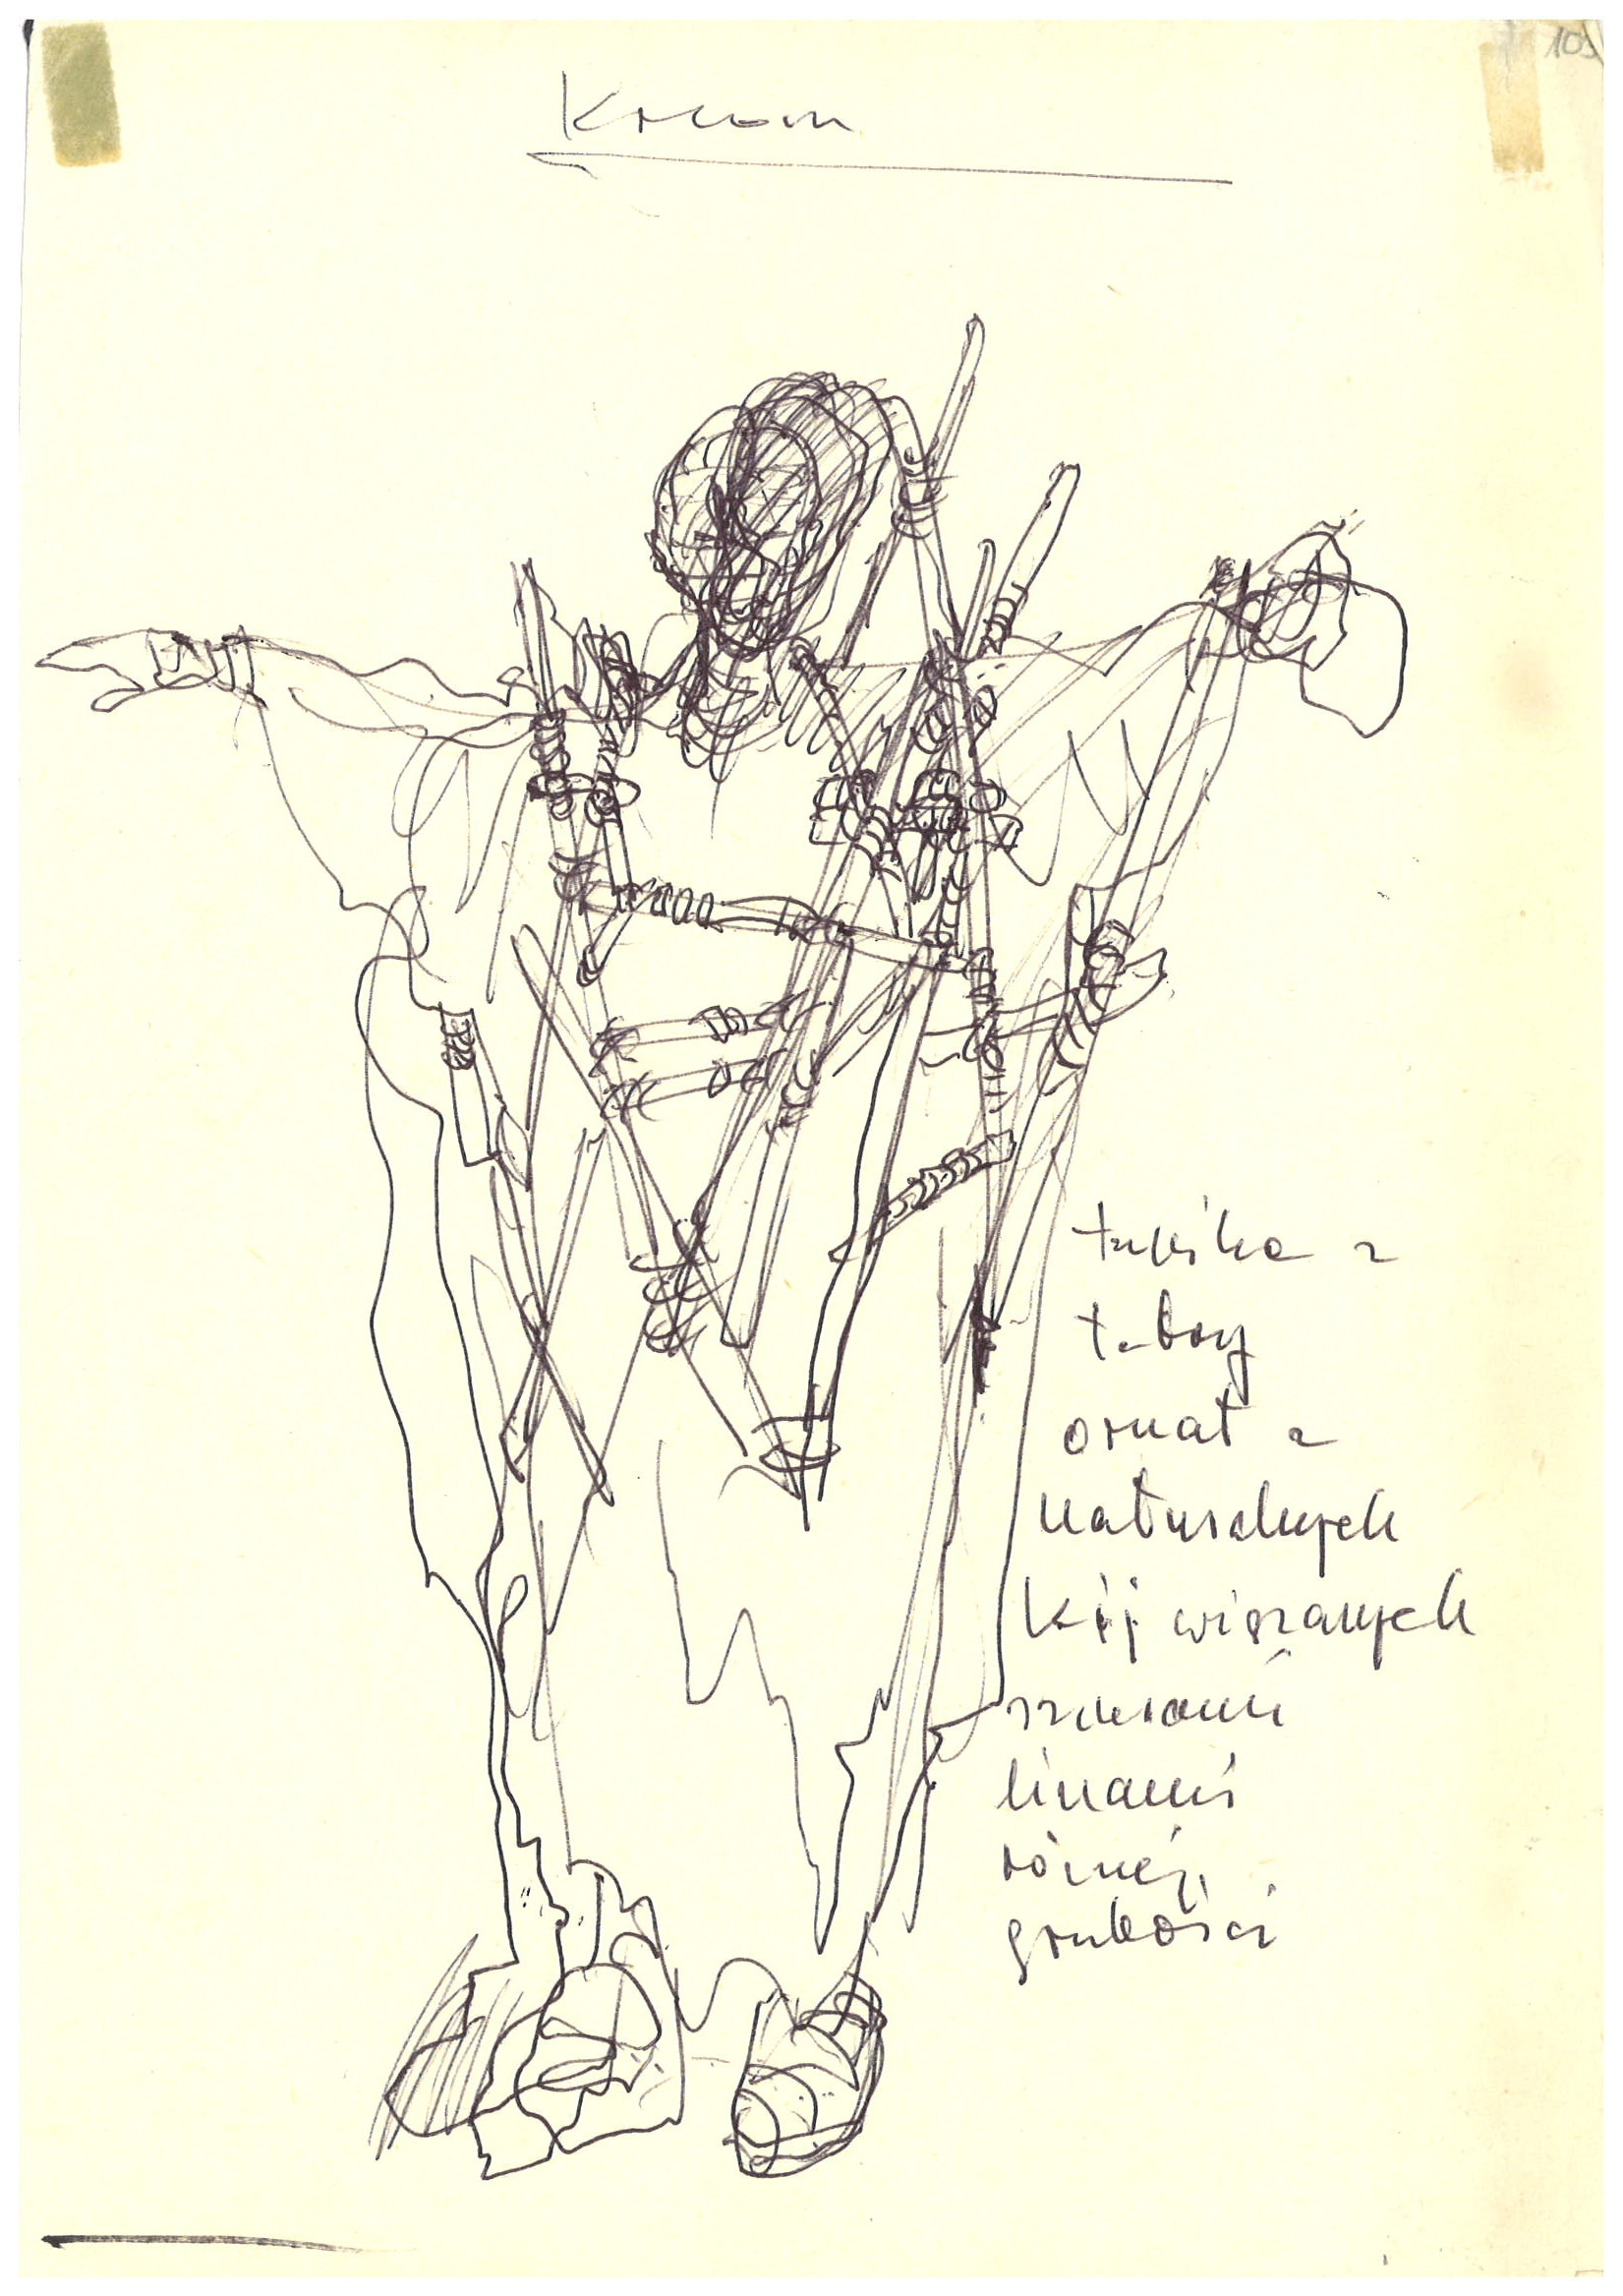 Kreon
tunika z
ornat z
naturalnych
kij wiązanych
sznurami
linami
różnej
grubości